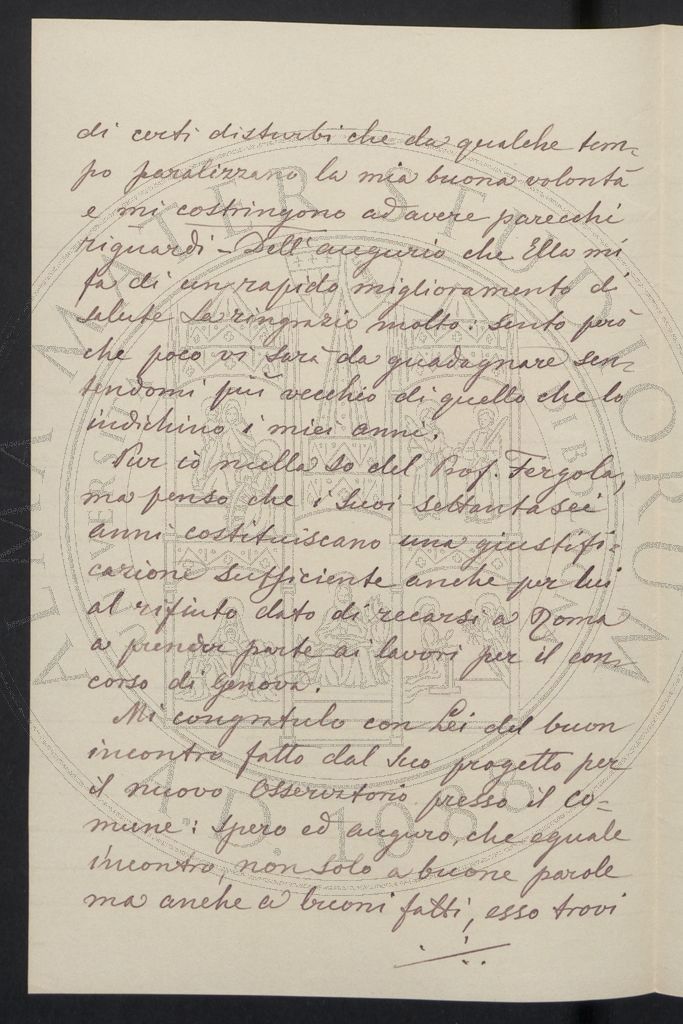 di certi disturbi che da qualche tem-
po paralizzano la mia buona volontà
e mi costringono ad avere parecchi
riguardi - Dell'augurio che Ella mi
fa di un rapido miglioramento di
salute La ringrazio molto: sento però
che poco vi sarà da guadagnare sen-
tendomi più vecchio di quello che lo
indichino i miei anni.
Pur iò nulla so del Prof. Fergola,
ma penso che i suoi settantasei
anni costituiscano una giustifi-
cazione sufficiente anche per lui
al rifiuto dato di recarsi a Roma
a prender parte ai lavori per il con-
corso di Genova.
Mi congratulo con Lei del buon
incontro fatto dal suo progetto per
il nuovo Osservatorio presso il Co-
mune: spero ed auguro, che eguale
incontro, non solo a buone parole
ma anche a buoni fatti, esso trovi
ALMA MATER STUDIORUM
A.D. 1088